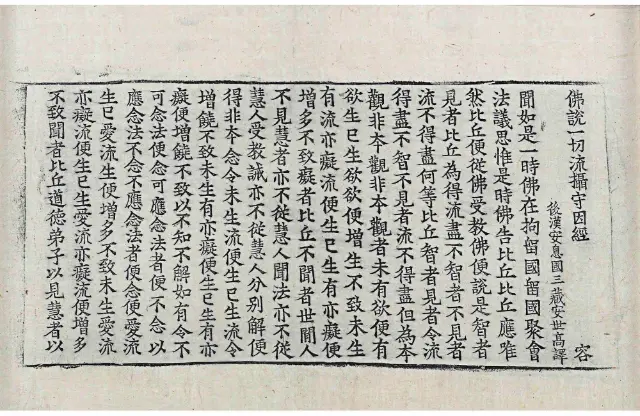 佛說一切流攝守因經
容
後漢安息國三藏安世高譯
聞如是一時佛在拘留國留國聚會
法議思惟是時佛告比丘比丘應唯
然比丘便從佛受教佛便說是智者
見者比丘為得流盡不智者不見者
流不得盡何等比丘智者見者令流
得盡不智不見者流不得盡但為本
觀非本觀非本觀者未有欲便有
欲生已生欲欲便增生不致未生
有流亦癡流便生已生有亦癡便
增多不致癡者比丘不聞者世閒人
不見慧者亦不從慧人聞法亦不從
慧人受教誡亦不從慧人分別解便
得非本念令未生流便生已生流令
增饒不致未生有亦癡便生已生有亦
癡便增饒不致以不知不解如有令不
可念法便念可應念法者便不念以
應念法不念不應念法者便念便愛流
生已愛流生便增多不致未生愛流
亦癡流便生已生愛流亦癡流便增多
不致聞者比丘道德弟子以見慧者以